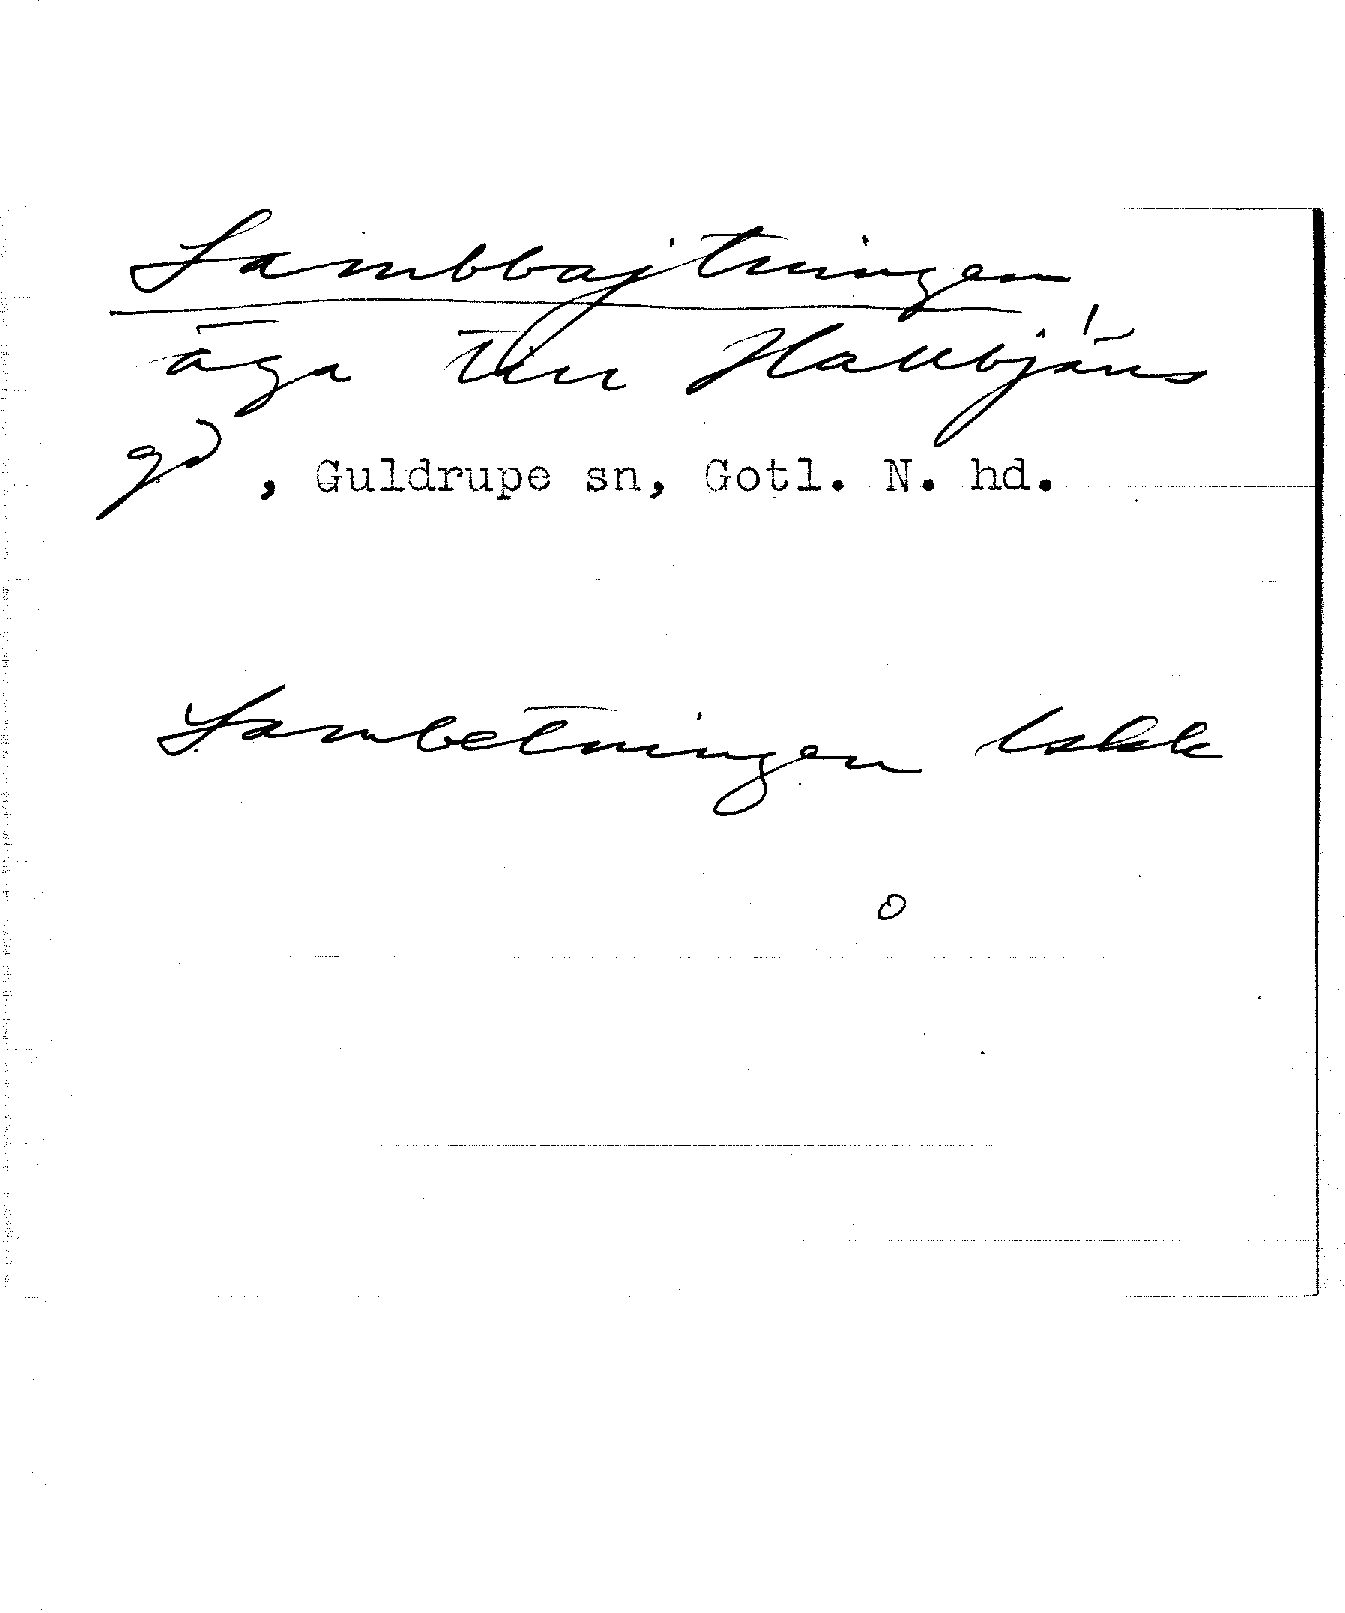 Lambbajtningen
äga till Hallbjäns
gd, Guldrupe sn, Gotl. N. hd.
Lambetningen
o